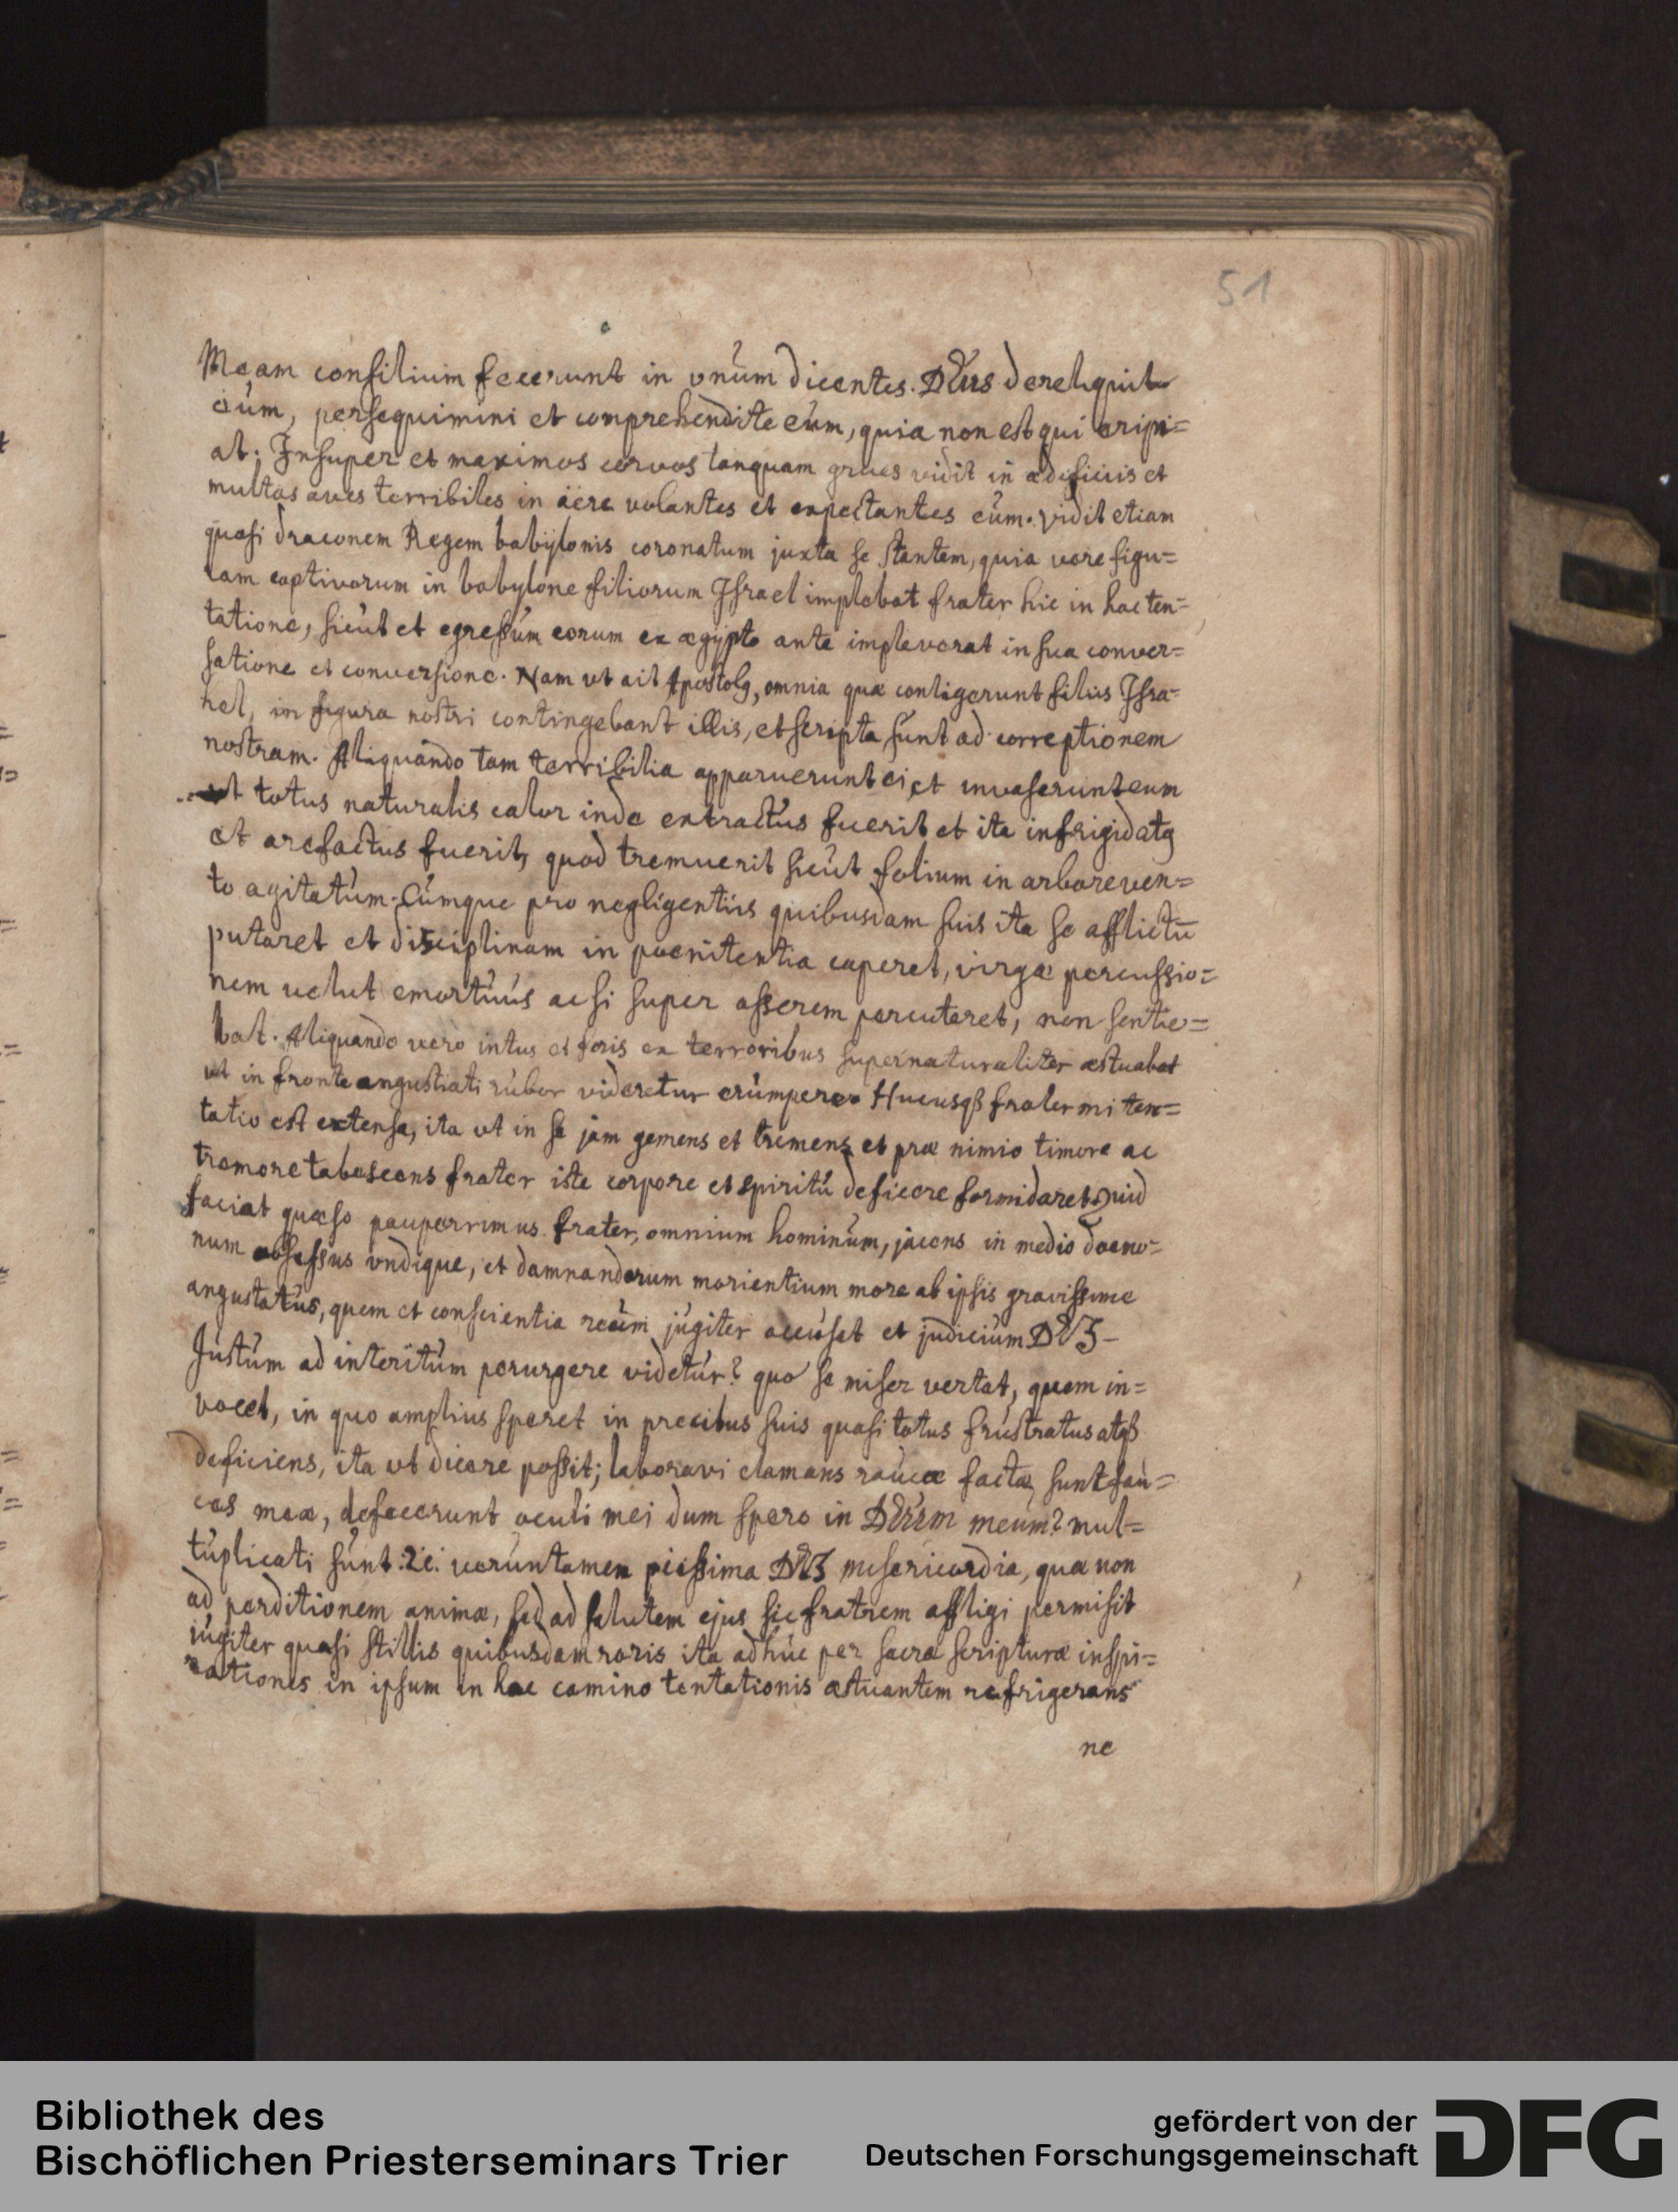 51
Meam consilium fecerunt in vnum dicentes. DEus dereliquit
eum, persequimini et comprehendite eum, quia non est qui eripi=
at; Insuper et maximos corvos tanquam grues vidit in ædificiis et
multas aves terribiles in äere volantes et expectantes eum. vidit etiam
quasi draconem Regem babÿlonis coronatum juxta se stantem, quia vere figu=
ram captivorum in babylone filiorum Israel implebat frater hic in hac ten=
tatione, sicut et egressum eorum ex ægÿpto ante impleverat in sua conver=
satione et conversione. Nam vt ait Apostolq, omnia quæ contigerunt filiis Isra=
hel, in figura nostri contingebant illis, et scripta sunt ad correptionem
nostram. Aliquando tam terribilia apparuerunt ei, et invaserunt eum
vt totus naturalis calor inde extractus fuerit et ita infrigidatq
et arefactus fuerit, quod tremuerit sicut folium in arbore ven=
to agitatum. Cumque pro negligentiis quibusdam suis ita se afflictū
putaret et disciplinam in poenitentia caperet, virgæ percussio=
nem velut emortuus ac si super asserem percuteret, non sentie=
bat. Aliquando vero intus et foris ex terroribus supernaturaliter æstuabat
ut in fronte angustiati rubor videretur erumpere. Hucusqß frater mi ten=
tatio est extensa, ita vt in se jam gemens et tremens et præ nimio timore ac
tremore tabescens frater iste corpore et spiritu deficere formidaret. Quid
faciat quæso pauperrimus frater, omnium hominum, jacens in medio daemo=
num obsessus vndique, et damnandorum morientium more ab ipsis gravissime
angustatus, quem et conscientia reum jugiter accuset et judicium DEI
Justum ad interitum perurgere videtur? quo se miser vertat, quem in=
vocet, in quo amplius speret in precibus suis quasi totus frustratus atqß
deficiens, ita vt dicere possit; laboravi clamans raucæ factæ sunt fau=
ces meæ, defecerunt oculi mei dum spero in DEum meum? mul=
tuplicati sunt :2c: veruntamen piissima DEI misericordia, quæ non
ad perditionem animæ, sed ad salutem ejus sic fratrem affligi permisit
iugiter quasi stillis quibusdam roris ita adhuc per sacræ scripturæ inspi=
rationes in ipsum in hac camino tentationis æstuantem refrigerans
ne
Bibliothek des
Bischöflichen Priesterseminars Trier
gefördert von der
Deutschen Forschungsgemeinschaft
DFG